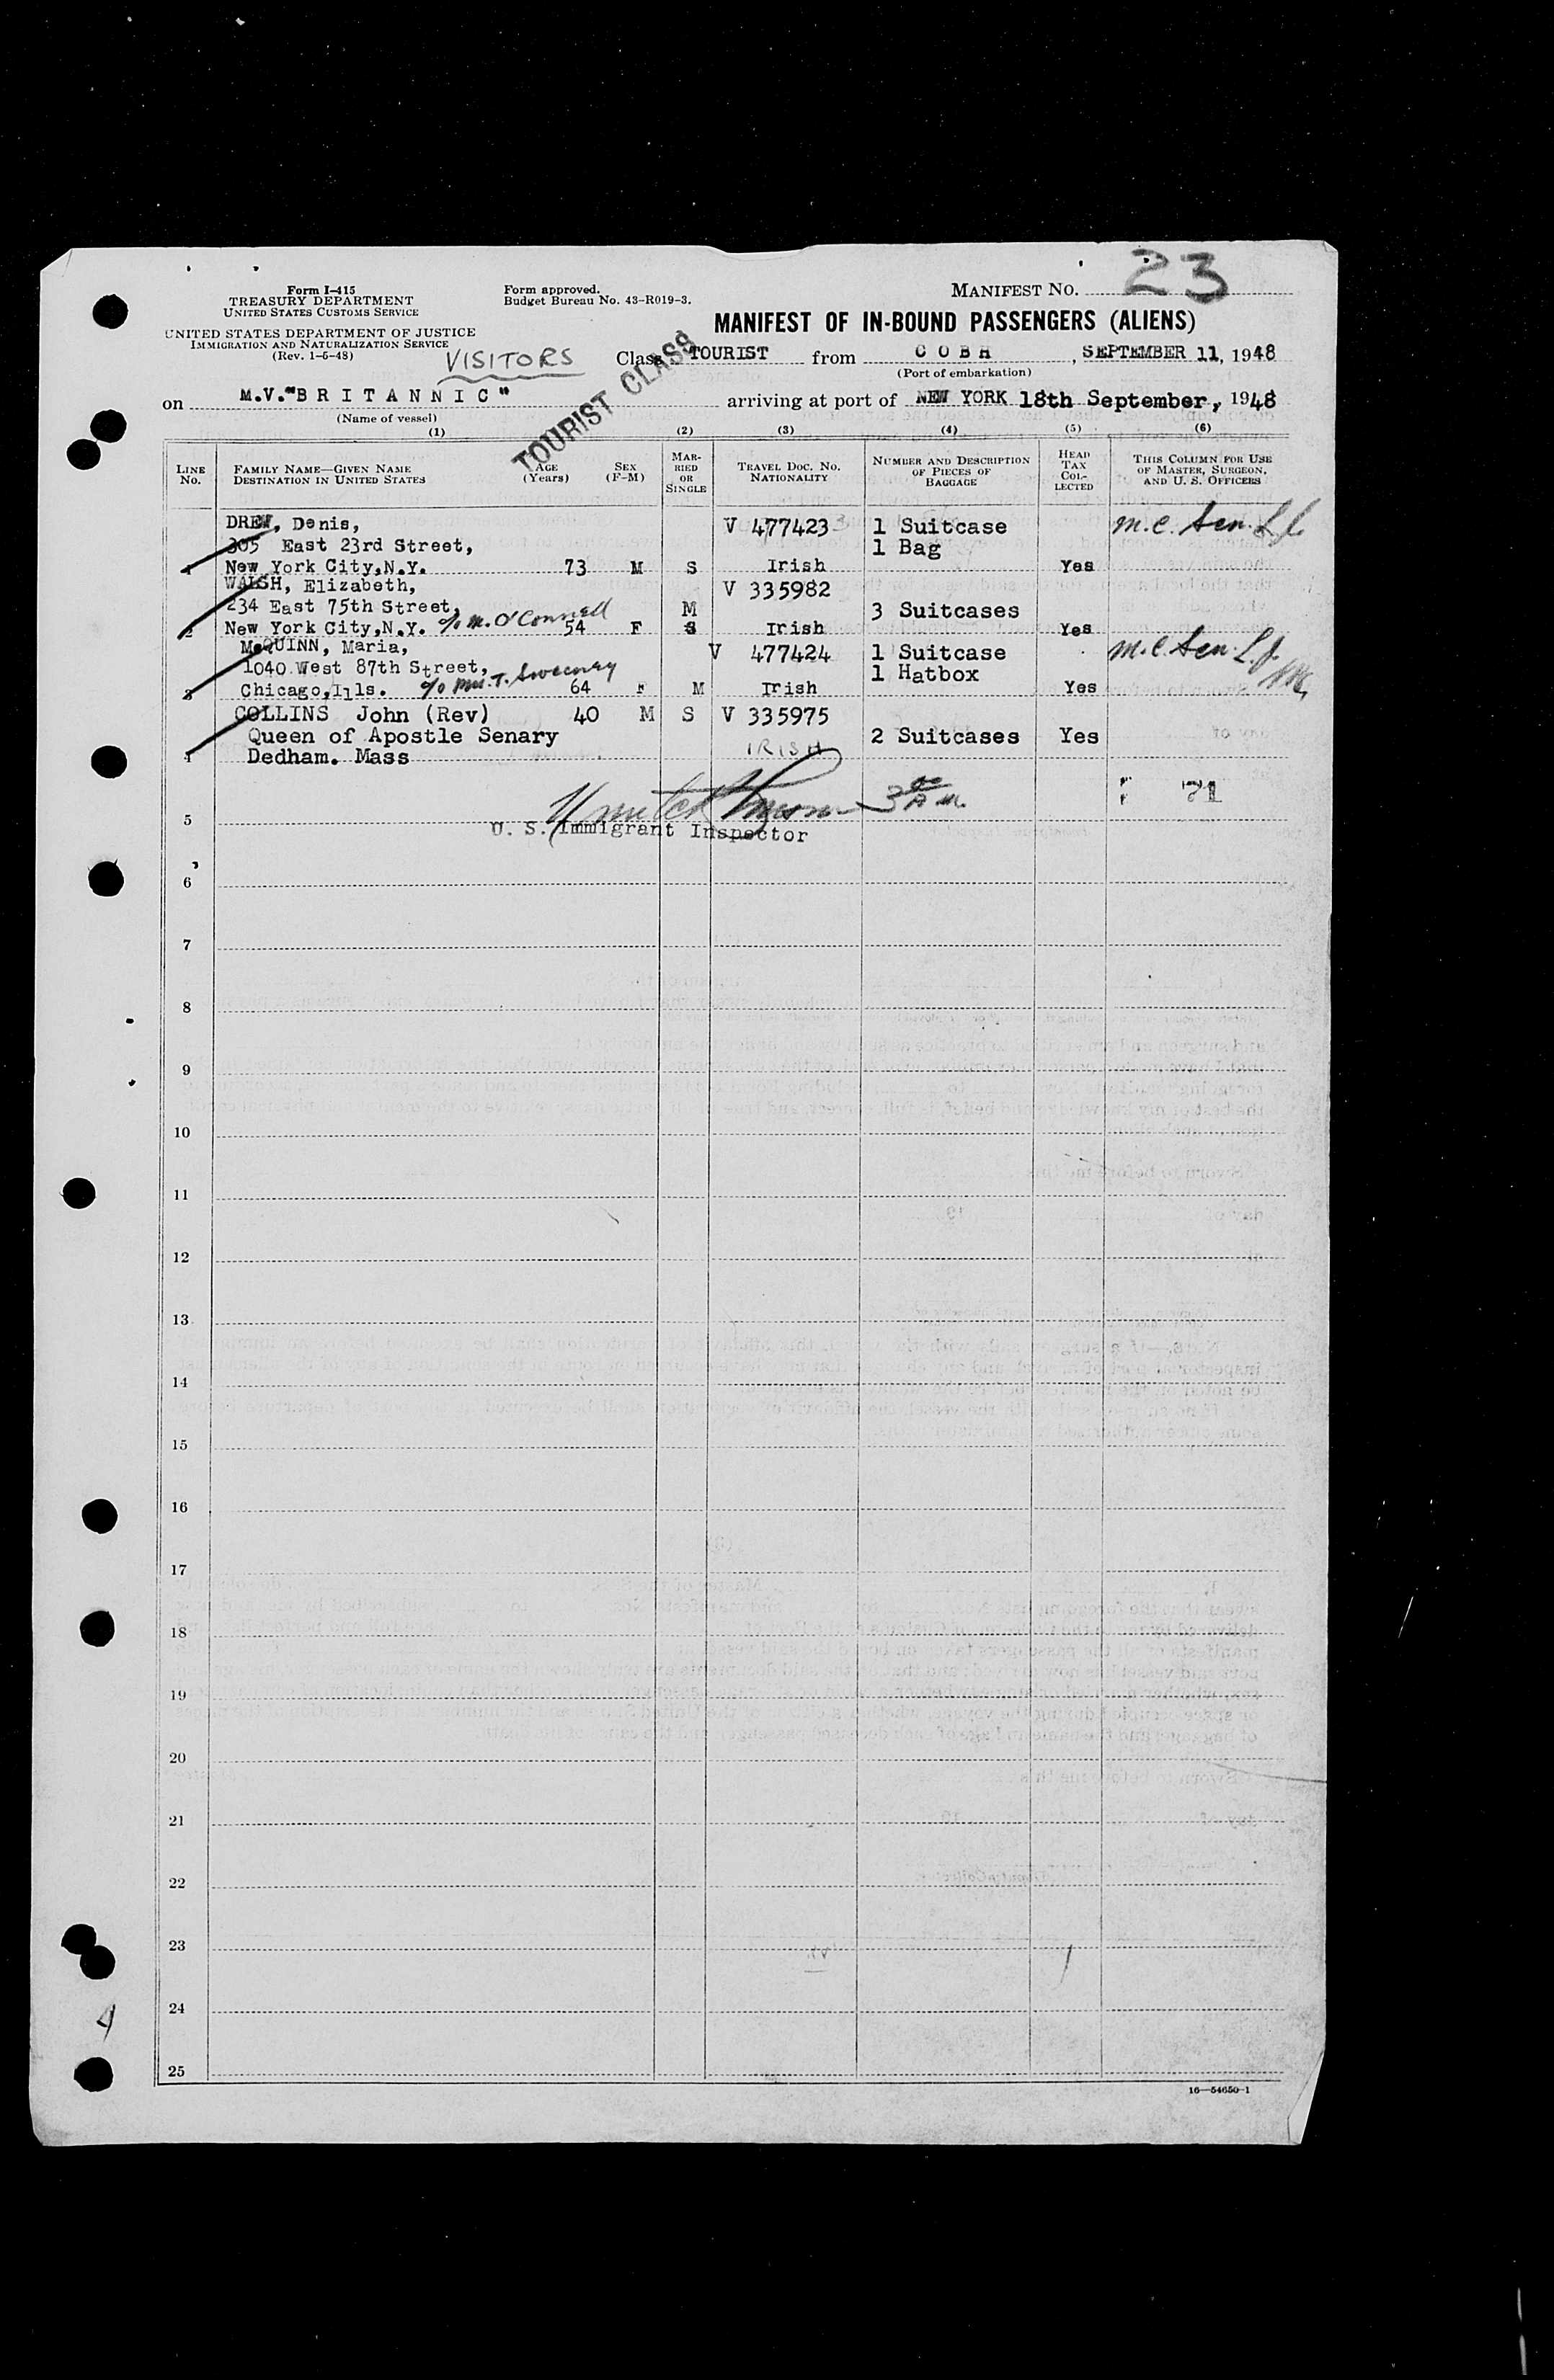 23
Form I-415
TREASURY DEPARTMENT
UNITED STATES CUSTOMS SERVICE
Form approved.
Budget Bureau No. 43-R019-3.
MANIFEST NO.
UNITED STATES DEPARTMENT OF JUSTICE
IMMIGRATION AND NATURALIZATION SERVICE
(Rev. 1-5-48)
VISITORS
MANIFEST OF IN-BOUND PASSENGERS (ALIENS)
Class TOURIST from COBH, SEPTEMBER 11, 1948
(Port of embarkation)
TOURIST CLASS
on M.V."BRITANNIC" arriving at port of NEW YORK 18th September, 1948
(Name of vessel)
(1) (2) (3) (4) (5) (6)
LINE No. FAMILY NAME—GIVEN NAME DESTINATION IN UNITED STATES AGE (Years) SEX (F-M) MARRIED OR SINGLE TRAVEL DOC. NO. NATIONALITY NUMBER AND DESCRIPTION OF PIECES OF BAGGAGE HEAD TAX COLLECTED THIS COLUMN FOR USE OF MASTER, SURGEON, AND U. S. OFFICERS
DREW, Denis, V 477423 1 Suitcase m.c. Sen.
305 East 23rd Street, 1 Bag
1 New York City,N.Y. 73 M S Irish Yes
WALSH, Elizabeth, V 335982
234 East 75th Street, M 3 Suitcases
2 New York City,N.Y. c/o M. O'Connell 54 F S Irish Yes
McQUINN, Maria, V 477424 1 Suitcase m.c. Sen.
1040 West 87th Street, 1 Hatbox
3 Chicago,Ills. c/o Mrs. T. Sweeney 64 F M Irish Yes
COLLINS John (Rev) 40 M S V 335975
Queen of Apostle Senary IRISH 2 Suitcases Yes
4 Dedham. Mass
3 00 A.M.
71
5
U. S. Immigrant Inspector
6
7
8
9
10
11
12
13
14
15
16
17
18
19
20
21
22
23
24
25
4
16—54650-1